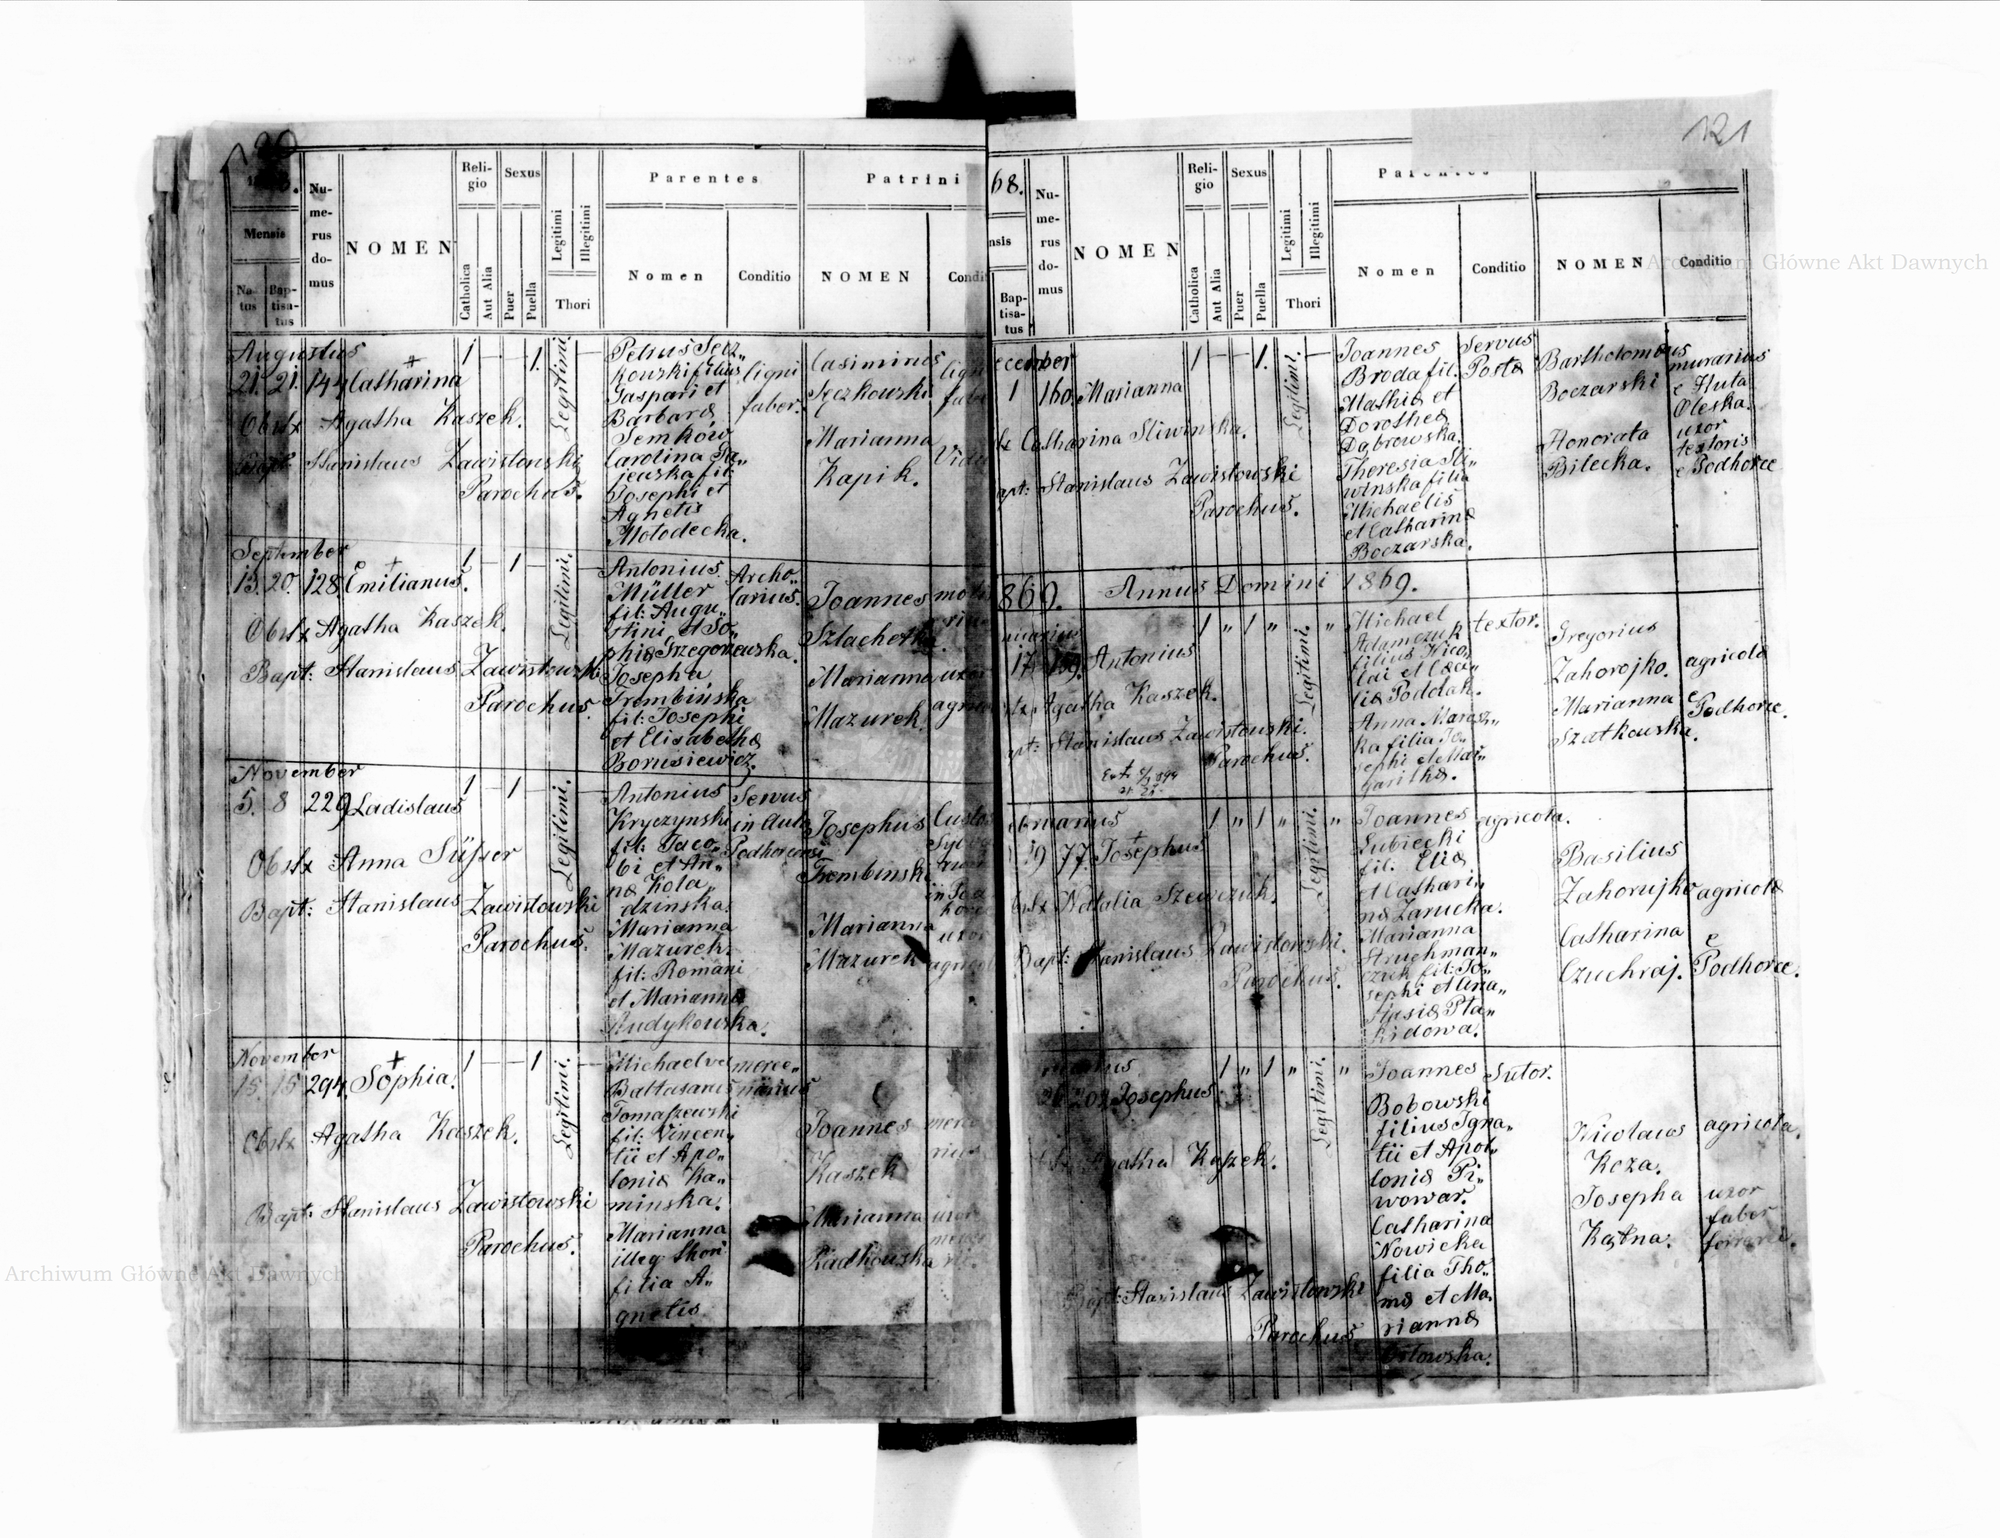 120
Mensis
Na-
tus
Bap-
tisa-
tus
Nu-
me-
rus
do-
mus
NOMEN
Reli-
gio
Catholica
Aut Alia
Sexus
Puer
Puella
Legitimi
Illegitimi
Thori
Parentes
Nomen
Conditio
Patrini
NOMEN
Condi
Augustus
21. 21. 144 Catharina
1 — — 1.
Legitimi
Obstx Agatha Kaszek.
Bapt: Stanislaus Zawistowski
Parochus.
Petrus Sęcz„
kowski filius
Gaspari et
Barbarae
Semków
Carolina Sa„
jewska fil:
Josephi et
Agnetis
Mołodecka.
ligni
faber.
Casimirus
Sęczkowski
Marianna
Kapik.
September
13. 20. 128 Emilianus.
1 — 1 —
Legitimi.
Obstx Agatha Kaszek.
Bapt: Stanislaus Zawistowski
Parochus.
Antonius
Müller
fil: Augu„
stini et So„
phiae Grzegorzewska.
Josepha
Trembińska
fil: Josephi
et Elisabethae
Borusiewicz.
Archo„
larius.
Joannes
Szlachetka.
Marianna
Mazurek.
November
5. 8 229 Ladislaus
1 — 1 —
Legitimi.
Obstx Anna Süsser
Bapt: Stanislaus Zawistowski
Parochus.
Antonius
Kryczynski
fil: Jaco„
bi et An„
nae Kola„
dzinska.
Marianna
Mazurek.
fil: Romani
et Mariannae
Rudykowska.
Servus
in Aula
Podhorcensi
Josephus
Trembinski
Marianna
Mazurek
uxor
November
15. 15 294. Sophia.
1 — — 1
Legitimi.
Obstx Agatha Kaszek.
Bapt: Stanislaus Zawistowski
Parochus.
Michael vel
Baltasarus
Tomaszewski
fil: Vincen„
tii et Apo„
loniae Ka„
minska.
Marianna
illeg thori
filia A„
gnetis.
merce„
narius
Joannes
Kaszek
Marianna
Radkowska
121
68.
nsis
Bap-
tisa-
tus
Nu-
me-
rus
do-
mus
NOMEN
Reli-
gio
Catholica
Aut Alia
Sexus
Puer
Puella
Legitimi
Illegitimi
Thori
Parentes
Nomen
Conditio
NOMEN
Conditio
ecember
1 160. Marianna
1 — — 1. —
Legitimi.
Catharina Sliwinska.
apt: Stanislaus Zawistowski
Parochus.
Joannes
Broda fil.
Mathiae et
Dorotheae
Dąbrowska.
Theresia Sli„
winska filia
Michaelis
et Catharinae
Boczarska.
Servus
Postae
Bartholomaeus
Boczarski
Honorata
Bilecka.
murarius
e Huta
Oleska.
uxor
textoris
e Podhorce
869. Annus Domini 1869.
17. 159. Antonius
1 „ 1 „ „
Legitimi.
Agatha Kaszek.
apt: Stanislaus Zawistowski.
Parochus.
Michael
Adamczuk
filius Nico„
lai et Cæci„
liae Poddak.
Anna Marosz„
ka filia Jo„
sephi et Mar„
garithae.
textor.
Gregorius
Zahorojko.
Marianna
Szatkowska.
agricolae
e
Podhorce.
ebruarius
19 77. Josephus
1 „ 1 „ „
Legitimi.
Natalia Szewczuk.
Bapt: Stanislaus Zawistowski.
Parochus.
Joannes
Lubiecki
fil: Eliae
et Cathari„
nae Zarucka.
Marianna
Struchman„
czuk fil: Jo„
sephi et Ana„
stasiae Pta„
kidowa.
agricola.
Basilius
Zahorujko
Catharina
Czuchraj.
agricolae
e
Podhorce.
26 202 Josephus
1 „ 1 „ „
Legitimi.
Agatha Kaszek.
Bapt: Stanislaus Zawistowski
Parochus
Joannes
Bobowski
filius Igna„
tii et Apol„
loniae Pi„
wowar.
Catharina
Nowicka
filia Tho„
mae et Ma„
riannae
Ostowska.
Sutor.
Nicolaus
Koza.
Josepha
Kątna.
agricola.
uxor
faber
ferrarii.
Archiwum Główne Akt Dawnych
Archiwum Główne Akt Dawnych